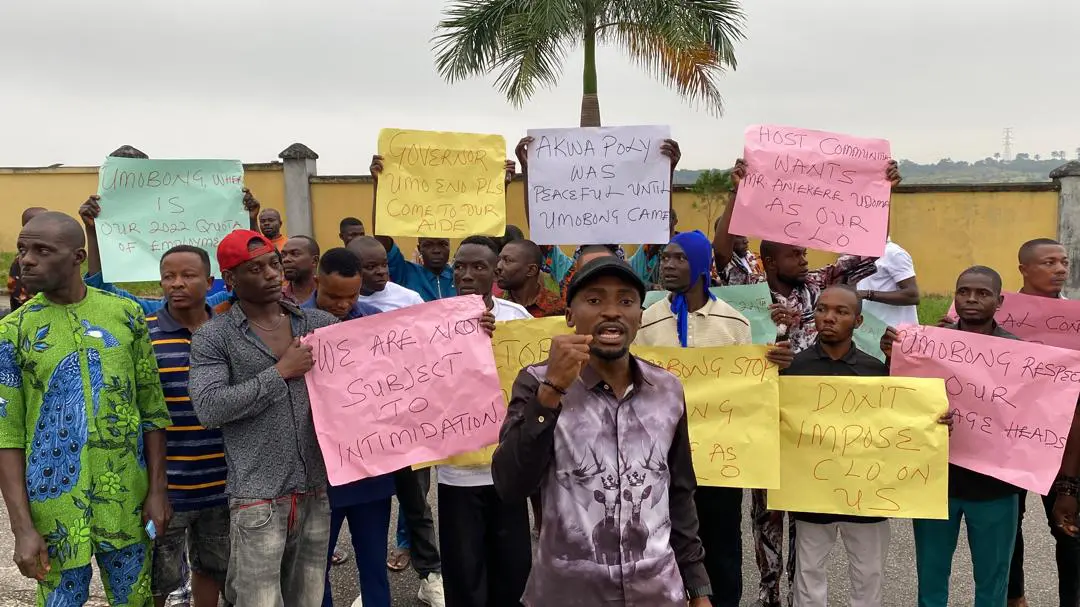 UMOBONG, WHERE
IS
OUR 2022 QUOTA
OF EMPLOYMENT
GOVERNOR
UMO ENO PLS
COME TO OUR
AIDE
AKWA POLY
WAS
PEACEFUL UNTIL
UMOBONG CAME
HOST COMMUNITY
WANTS
MR ANIEKERE UDOM
AS OUR
CLO
WE ARE NOT
SUBJECT
TO
INTIMIDATION.
STOP
UMOBONG STOP
AS
DON'T
IMPOSE
CLO ON
US
UMOBONG RESPECT
OUR
HEADS